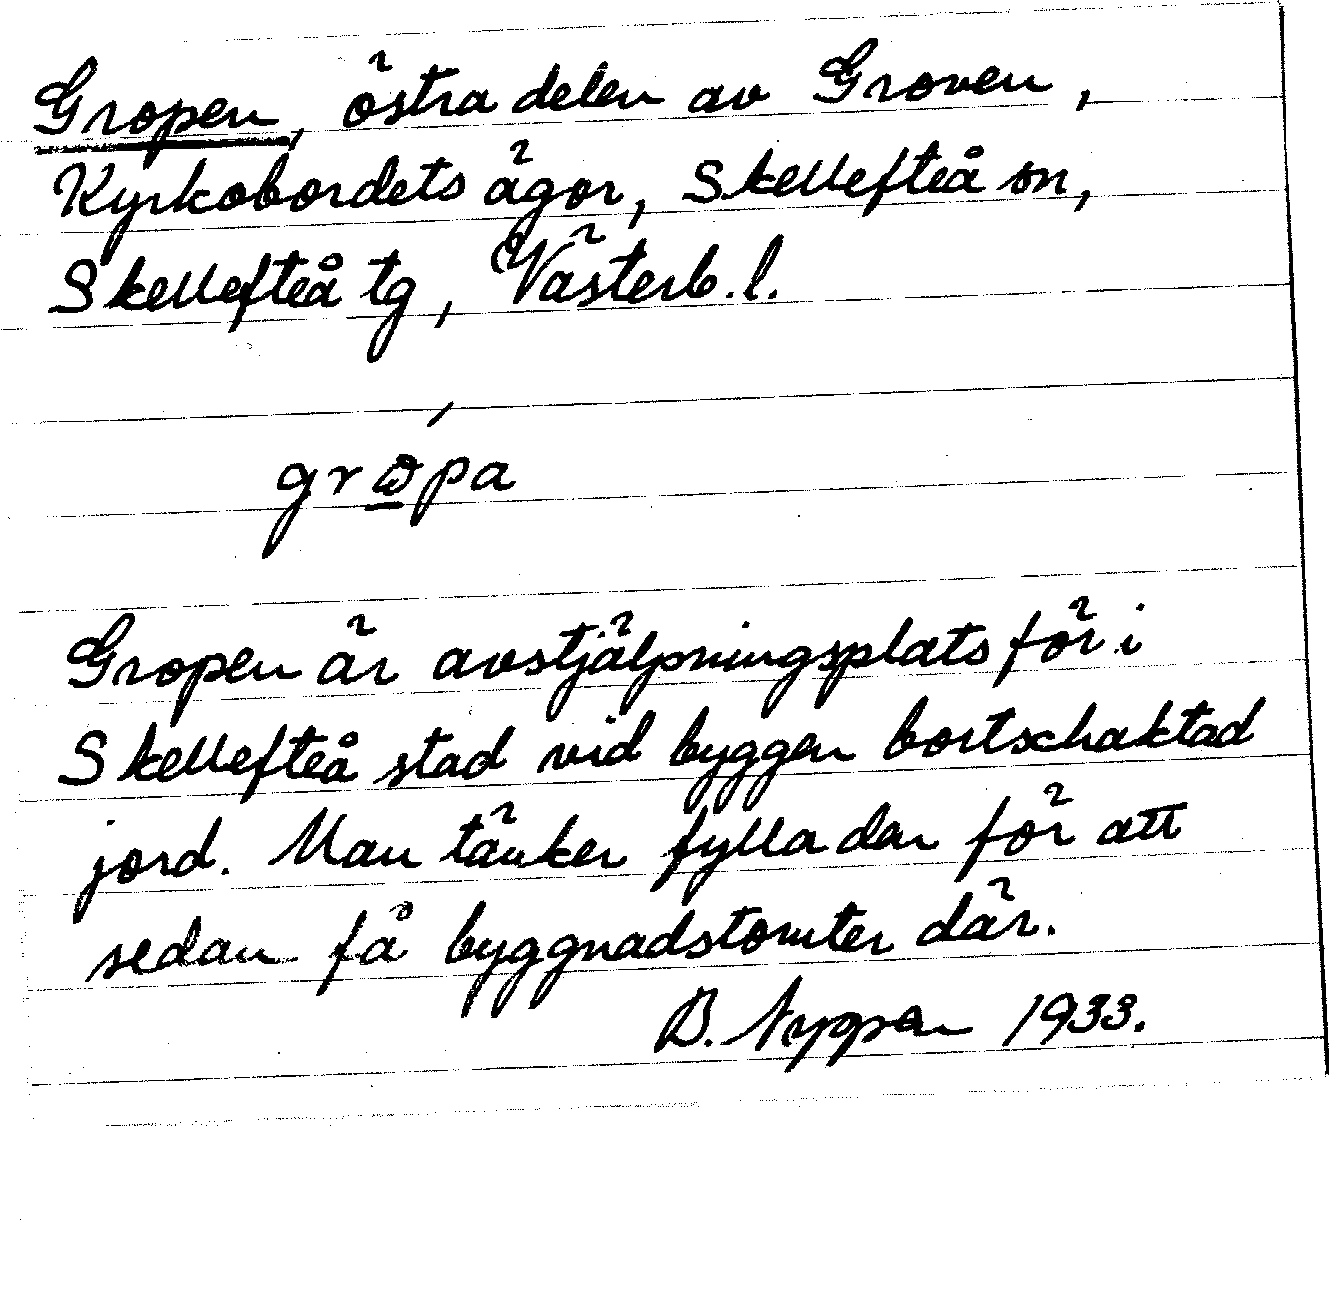 Gropen, östra delen av Groven,
Kyrkobordets ägor, Skellefteå sn,
Skellefteå tg, Västerb. l.
grώ̲pa
Gropen är avstjälpningsplats för i
Skellefteå stad vid byggen bortschaktad
jord. Man tänker fylla där för att
sedan få byggnadstomter där.
B. 1933.